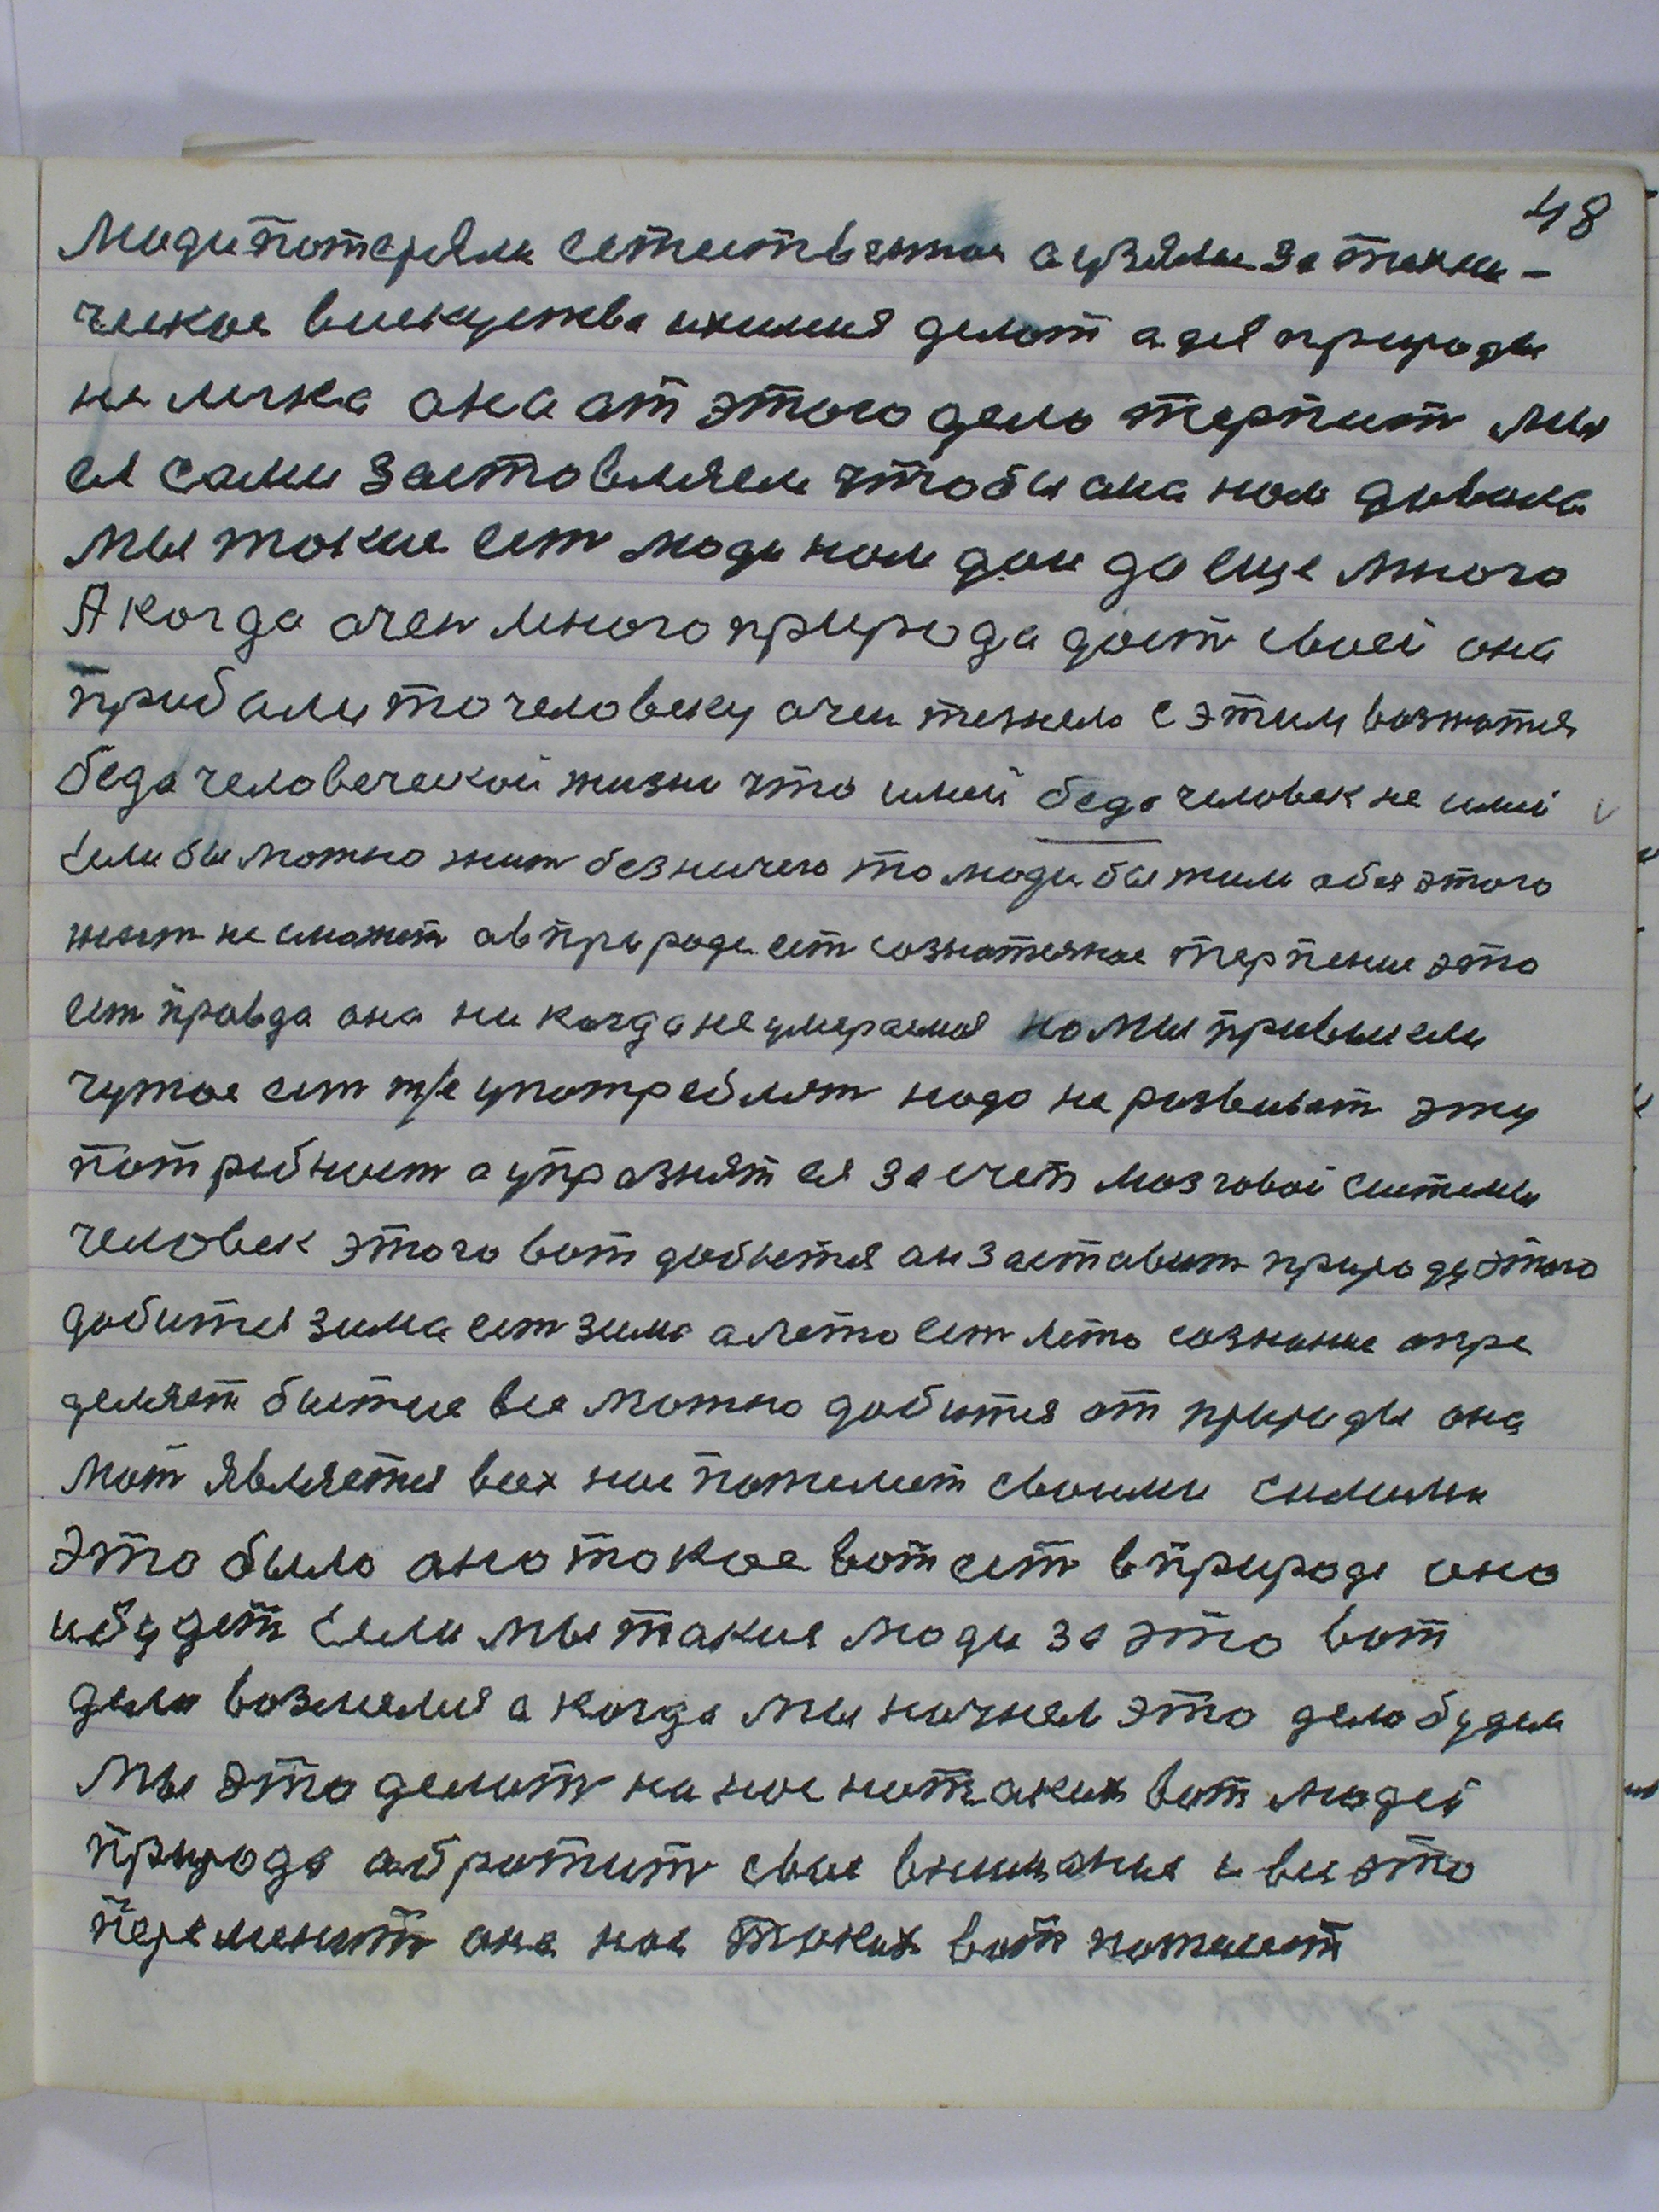 48
люди потеряли естественное а узяли за техни-
ческое в искуства и химия делат а для природы
не лечка она от этого дело терпит мы
ея сами заставляем чтобы она нам давала
мы такие ест люди нам дай да еще много
А когда очен много природа даст своей она
прибали то человеку очен тежело с этим
беда человеческой жизни что имей беда человек не имей
если бы можно жит без ничего то люди бы жили а без этого
жит не сможет а в природе ест сознателное терпение это
ест правда она ни когда не умераемая но мы привыкли
чужое ест т/е употреблят надо не развиват эту
потребност а упразнят ея за счет мозговой системы
человек этого вот добется он заставит природу этого
добится зима ест зима а лето ест лето сознание опре
деляет бытие все можно добится от природы она
мат является всех нас пожелеет своими силами
это было оно такое вот ест в природе оно
и будет если мы такие люди за это вот
дело возмемся а когда мы начнем это дело будем
мы это делат на нас на таких вот людей
природа обратит свое внимание и все это
переменит она нас таких вот пожелеет